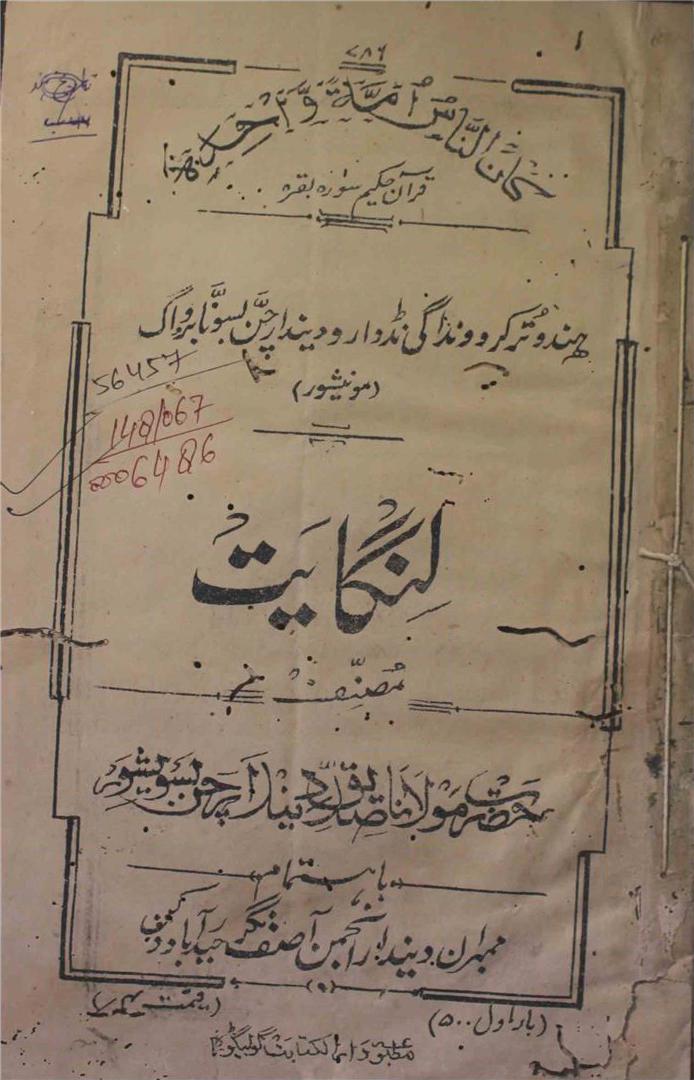 ۷۸۶
كَانَ النَّاسُ اُمَّةً وَّاحِدَةً
قرآن حکیم سورہ بقرہ
ہندو تُرکرو ونداگی نڈدارو دیندار چن بسونّا بروواگ
(مونیشور)
56457
148/067
0006486
لنگایت
مُصنّفہ
حضرت مولانا صدیق دیندار چن بسویشور
باہتمام
ممبران دیندار انجمن آصف نگر حیدرآباد دکن
(۹)
(بار اول ۵۰۰)
(قیمت
مطبوعہ